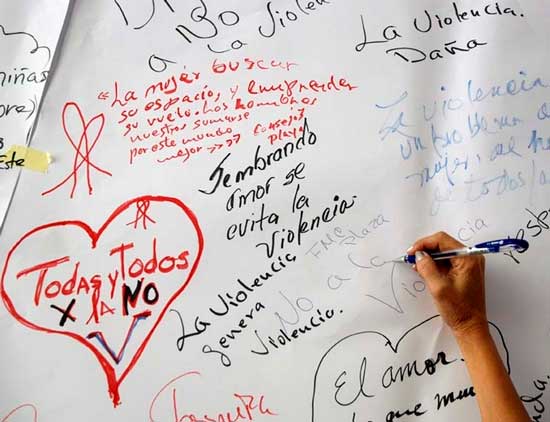 No
a La Violen
La Violencia.
Daña
niñas
ore)
Este
"La mujer buscar
su espacio, y emprender
su vuelo. Los hombres
nuestros sumarse
por este mundo
mejor >>>
La violencia
un problema
mujer,
de todos
Sembrando
amor se
evita la
Violencia.
FMC Plaza
No a la
Violencia
Todas y Todos
X la NO
V
La Violencia
genera
violencia.
El amor.
que mue